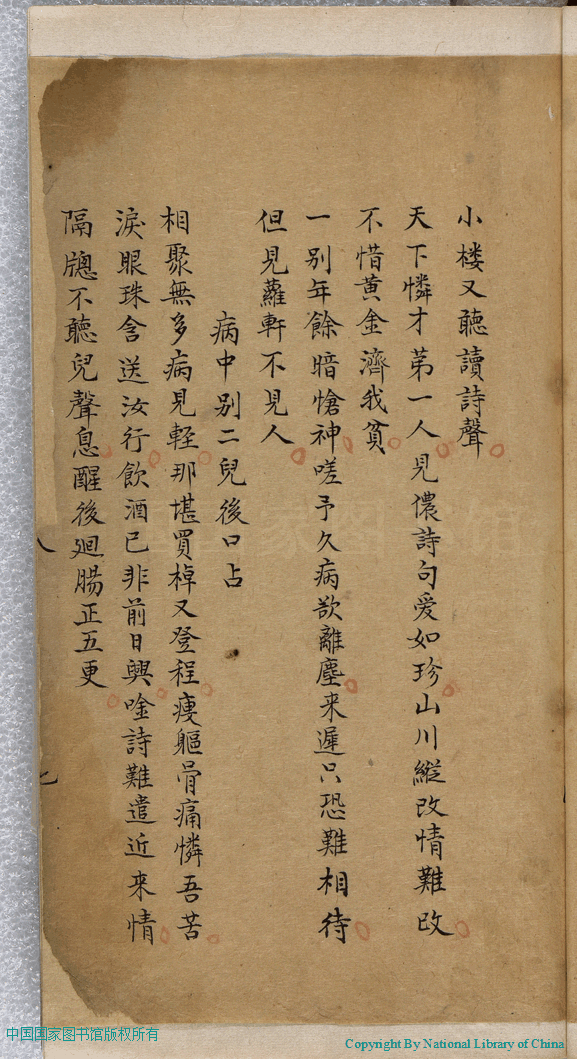 小楼又聽讀詩聲
天下憐才第一人見儂詩句爱如珍山川縱改情難改
不惜黄金濟我貧
一别年餘暗愴神嗟予久病欲離塵来遲只恐難相待
但見蘿軒不見人
病中别二兒後口占
相聚無多病見軽那堪買棹又登程痩軀骨痛憐吾苦
淚眼珠含送汝行飲酒已非前日興唫詩難遣近来情
隔牕不聽兒聲息醒後廻腸正五更
中国国家图书馆版权所有
Copyright By National Library of China